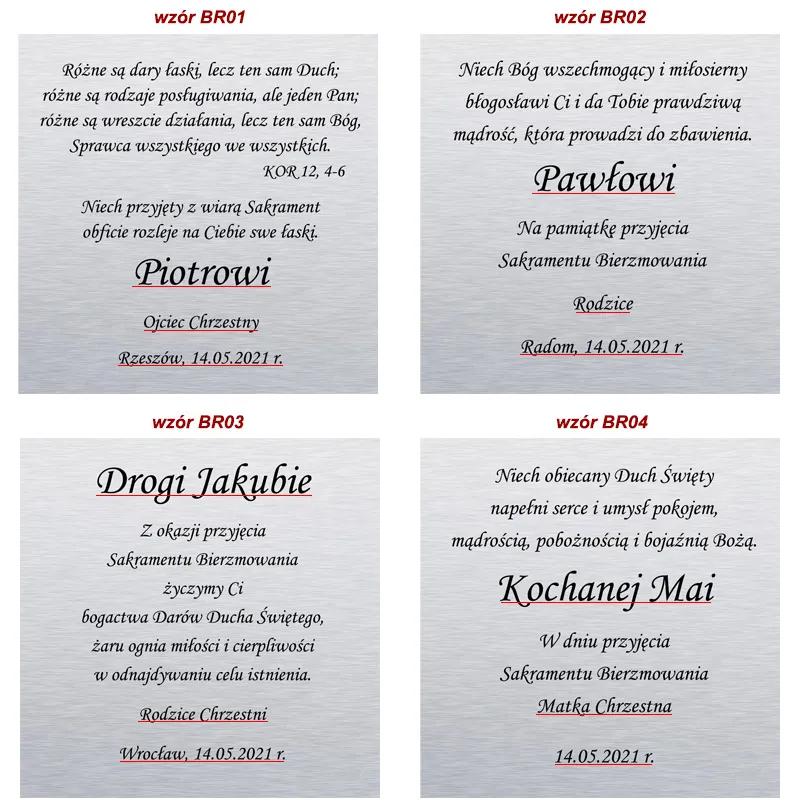 wzór BR01
Różne są dary łaski, lecz ten sam Duch;
różne są rodzaje posługiwania, ale jeden Pan;
różne są wreszcie działania, lecz ten sam Bóg,
Sprawca wszystkiego we wszystkich.
KOR 12, 4-6
Niech przyjęty z wiarą Sakrament
obficie rozleje na Ciebie swe łaski.
Piotrowi
Ojciec Chrzestny
Rzeszów, 14.05.2021 r.
wzór BR02
Niech Bóg wszechmogący i miłosierny
błogosławi Ci i da Tobie prawdziwą
mądrość, która prowadzi do zbawienia.
Pawłowi
Na pamiątkę przyjęcia
Sakramentu Bierzmowania
Rodzice
Radom, 14.05.2021 r.
wzór BR03
Drogi Jakubie
Z okazji przyjęcia
Sakramentu Bierzmowania
życzymy Ci
bogactwa Darów Ducha Świętego,
żaru ognia miłości i cierpliwości
w odnajdywaniu celu istnienia.
Rodzice Chrzestni
Wrocław, 14.05.2021 r.
wzór BR04
Niech obiecany Duch Święty
napełni serce i umysł pokojem,
mądrością, pobożnością i bojaźnią Bożą.
Kochanej Mai
W dniu przyjęcia
Sakramentu Bierzmowania
Matka Chrzestna
14.05.2021 r.